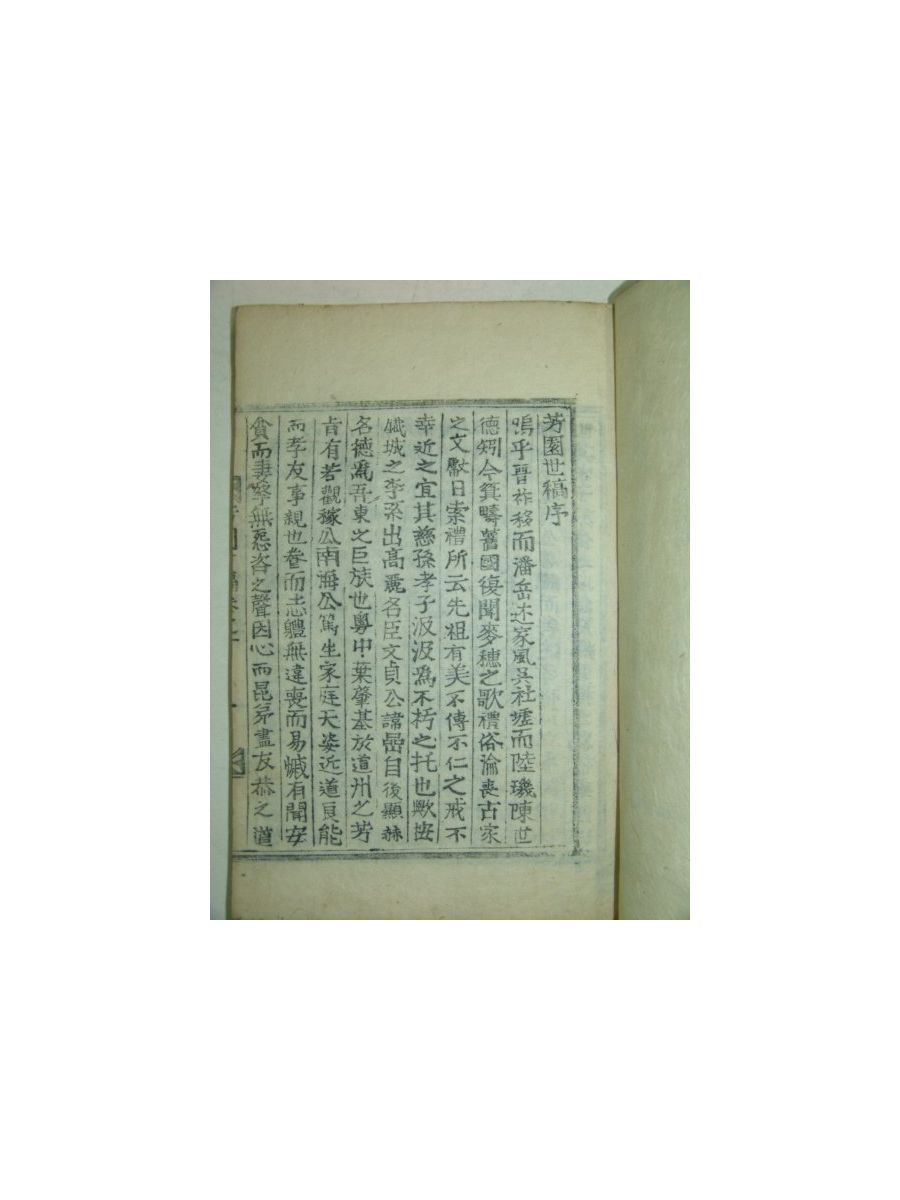 芳園世稿序
嗚乎晉祚移而潘岳述家風吳社墟而陸璣陳世
德矧今箕疇舊國復聞麥穗之歌禮俗淪喪古家
之文獻日索禮所云先祖有美不傳不仁之戒不
幸近之宜其慈孫孝子汲汲爲不朽之托也歟
鐵城之李系出高麗名臣文貞公諱嵒自後顯赫
名德爲吾東之巨族也粤中葉肇基於道州之芳
有若觀稼公南海公篤生家庭天姿近道良能
而孝友事親也養而志軆無違喪而易慽有聞安
貧而妻孥無怨咨之聲因心而昆弟盡友恭之道